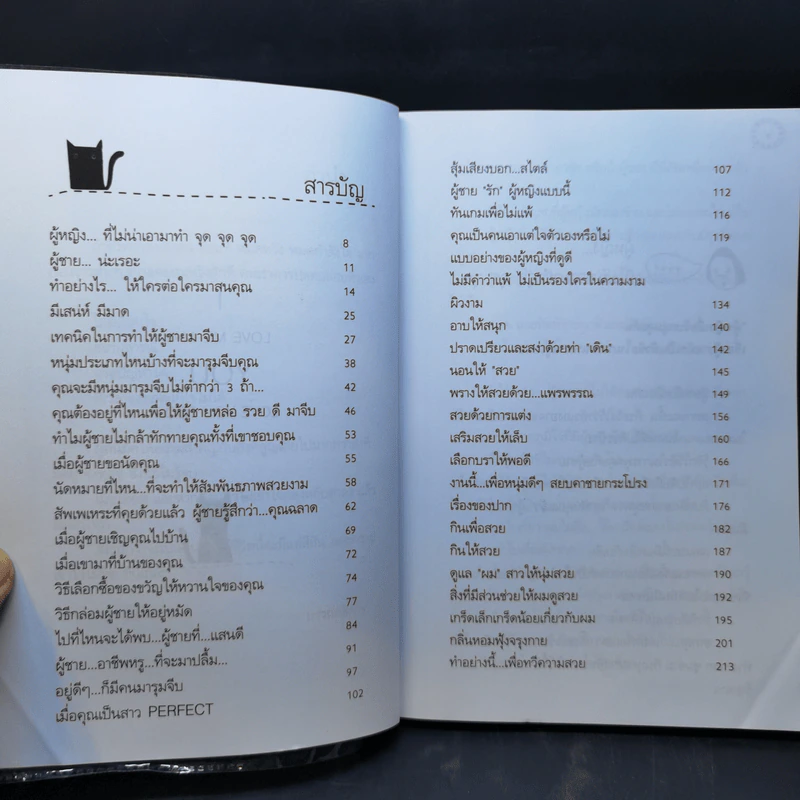 สารบัญ
ผู้หญิง... ที่ไม่น่าเอามาทำ จุด จุด จุด 8
ผู้ชาย... น่ะเรอะ 11
ทำอย่างไร... ให้ใครต่อใครมาสนคุณ 14
มีเสน่ห์ มีมาด 25
เทคนิคในการทำให้ผู้ชายมาจีบ 27
หนุ่มประเภทไหนบ้างที่จะมารุมจีบคุณ 38
คุณจะมีหนุ่มมารุมจีบไม่ต่ำกว่า 3 ถ้า... 42
คุณต้องอยู่ที่ไหนเพื่อให้ผู้ชายหล่อ รวย ดี มาจีบ 46
ทำไมผู้ชายไม่กล้าทักทายคุณทั้งที่เขาชอบคุณ 53
เมื่อผู้ชายขอนัดคุณ 55
นัดหมายที่ไหน...ที่จะทำให้สัมพันธภาพสวยงาม 58
สัพเพเหระที่คุยด้วยแล้ว ผู้ชายรู้สึกว่า...คุณฉลาด 62
เมื่อผู้ชายเชิญคุณไปบ้าน 69
เมื่อเขามาที่บ้านของคุณ 72
วิธีเลือกซื้อของขวัญให้หวานใจของคุณ 74
วิธีกล่อมผู้ชายให้อยู่หมัด 77
ไปที่ไหนจะได้พบ...ผู้ชายที่...แสนดี 84
ผู้ชาย...อาชีพหรู...ที่จะมาปลื้ม... 91
อยู่ดีๆ...ก็มีคนมารุมจีบ 97
เมื่อคุณเป็นสาว PERFECT 102
สุ้มเสียงบอก...สไตล์ 107
ผู้ชาย "รัก" ผู้หญิงแบบนี้ 112
ทันเกมเพื่อไม่แพ้ 116
คุณเป็นคนเอาแต่ใจตัวเองหรือไม่ 119
แบบอย่างของผู้หญิงที่ดูดี
ไม่มีคำว่าแพ้ ไม่เป็นรองใครในความงาม
ผิวงาม 134
อาบให้สนุก 140
ปราดเปรียวและสง่าด้วยท่า "เดิน" 142
นอนให้ "สวย" 145
พรางให้สวยด้วย...แพรพรรณ 149
สวยด้วยการแต่ง 156
เสริมสวยให้เล็บ 160
เลือกบราให้พอดี 166
งานนี้...เพื่อหนุ่มดีๆ สยบคาชายกระโปรง 171
เรื่องของปาก 176
กินเพื่อสวย 182
กินให้สวย 187
ดูแล "ผม" สาวให้นุ่มสวย 190
สิ่งที่มีส่วนช่วยให้ผมดูสวย 192
เกร็ดเล็กเกร็ดน้อยเกี่ยวกับผม 195
กลิ่นหอมฟุ้งจรุงกาย 201
ทำอย่างนี้...เพื่อทวีความสวย 213